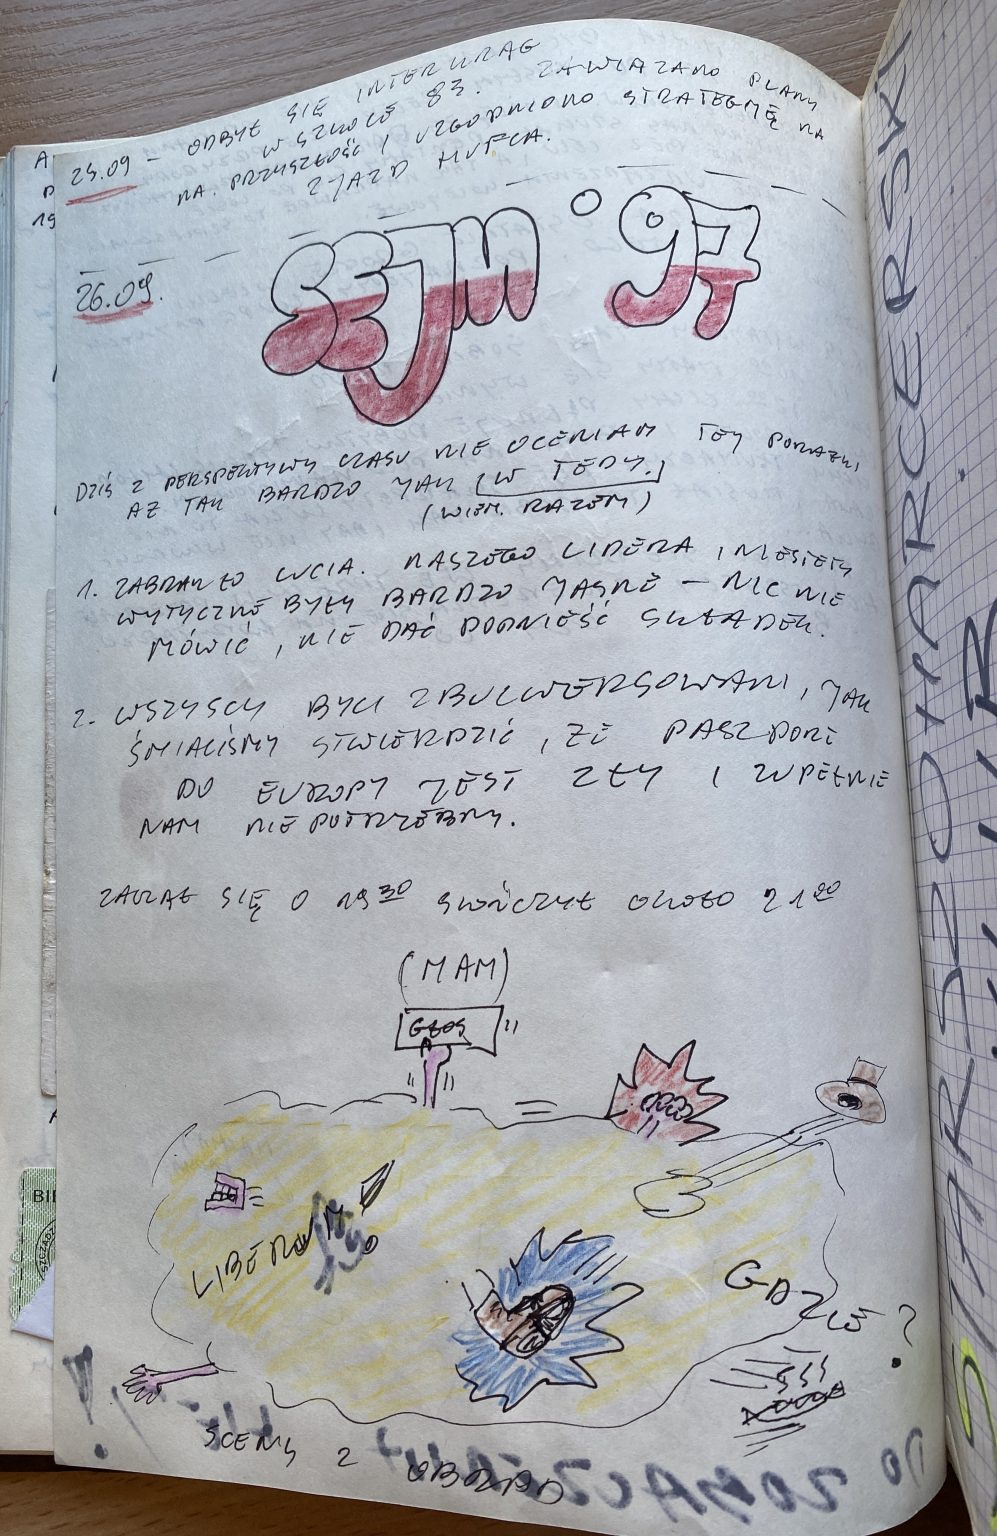 25.09 – ODBYŁ SIĘ INTERKRĄG
W SZKOLE 83. ZAWIĄZANO PLANY
NA PRZYSZŁOŚĆ I UZGODNIONO STRATEGIĘ NA
ZJAZD HUFCA.
26.09.
SEJM '97
DZIŚ Z PERSPEKTYWY CZASU NIE OCENIAM TEJ PORAŻKI
AŻ TAK BARDZO JAK W TEDY.
(WIEM. RAZEM)
1. ZABRAKŁO LUCJA. NASZEGO LIDERA, NIESTETY
WYTYCZNE BYŁY BARDZO JASNE – NIC NIE
MÓWIĆ, NIE DAĆ PODNIEŚĆ SKŁADEK.
2. WSZYSCY BYLI ZBULWERSOWANI, JAK
ŚMIALIŚMY STWIERDZIĆ, ŻE PASZPORT
DO EUROPY JEST ZŁY I ZUPEŁNIE
NAM NIE POTRZEBNY.
ZACZĄŁ SIĘ O 19 30 SKOŃCZYŁ OKOŁO 21 00
(MAM)
GŁOS
LIBERUM
GDZIE?
SCENY Z OBRAD
STARSZOHARCERSKI
BIL